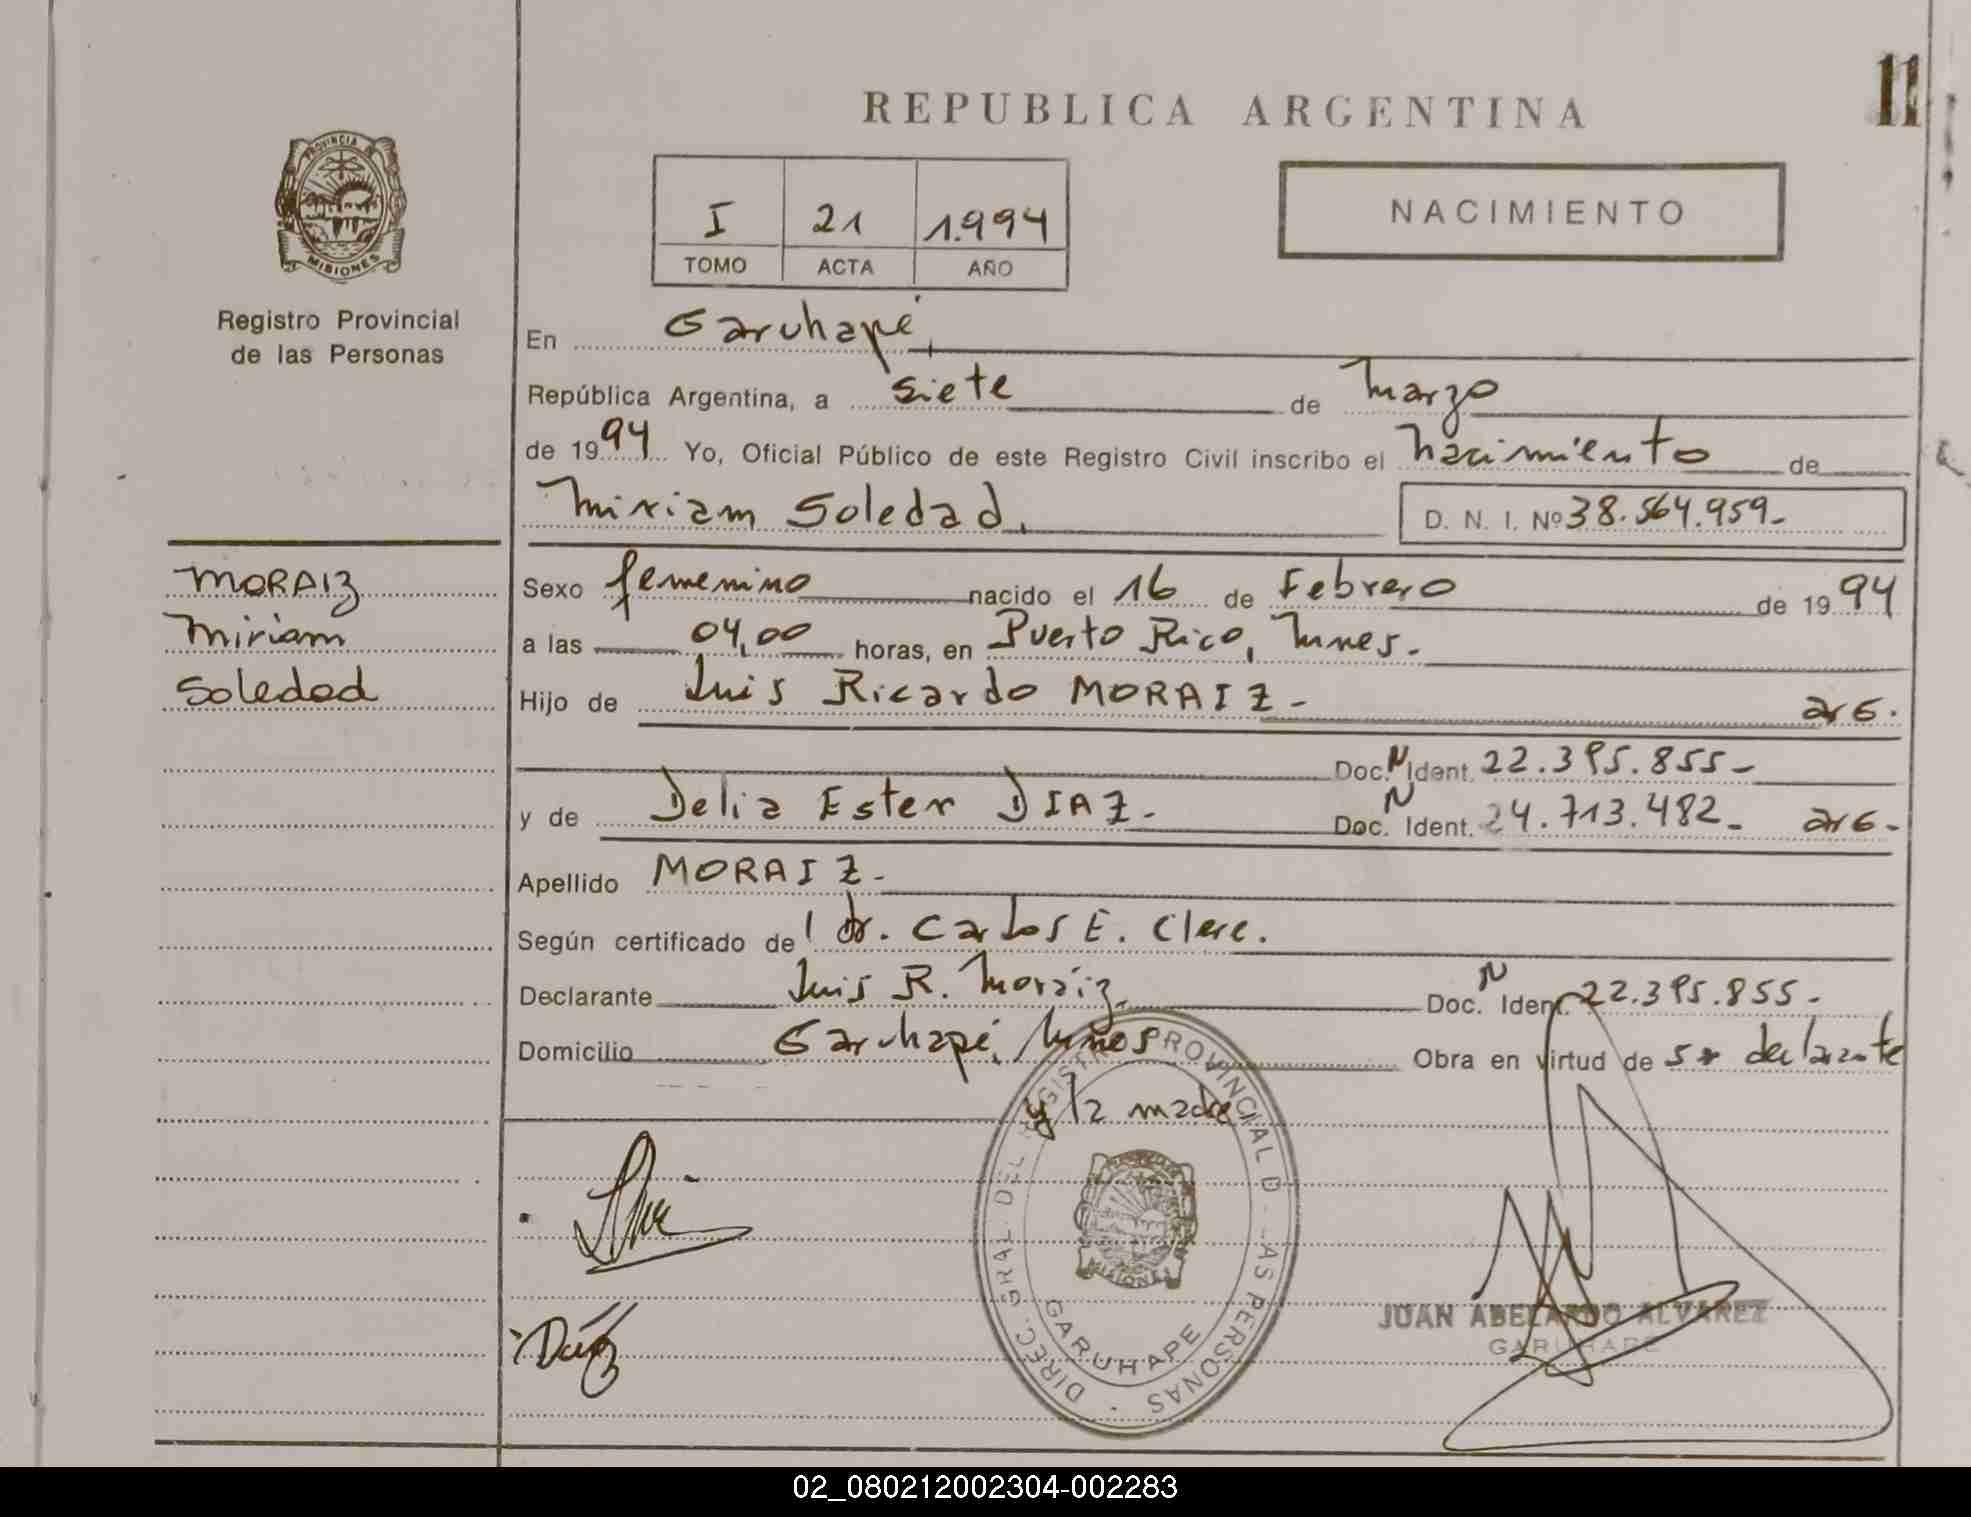 11
REPUBLICA ARGENTINA
PROVINCIA DE
MISIONES
Registro Provincial
de las Personas
I 21 1.994
TOMO ACTA AÑO
NACIMIENTO
En Garuhapé,
República Argentina, a siete de Marzo
de 1994 Yo, Oficial Público de este Registro Civil inscribo el Nacimiento de
Miriam Soledad, D. N. I. Nº 38.564.959-
MORAIZ
Miriam
Soledad
Sexo femenino nacido el 16 de Febrero de 1994
a las 04,00 horas, en Puerto Rico, Mnes.
Hijo de Luis Ricardo MORAIZ - arg.
Doc. N Ident. 22.395.855-
y de Delia Ester DIAZ. Doc. N Ident. 24.713.482- arg-
Apellido MORAIZ-
Según certificado de dr. Carlos E. Clerc.
Declarante Luis R. Moráiz, Doc. N Ident. 22.395.855-
Domicilio Garuhapé, Mnes Obra en virtud de ser declarante
y la madre
DIREC. GRAL. DEL REGISTRO PROVINCIAL DE LAS PERSONAS
MISIONES
GARUHAPE
Díaz
JUAN ABELARDO ALVAREZ
GARUHAPE
02_080212002304-002283